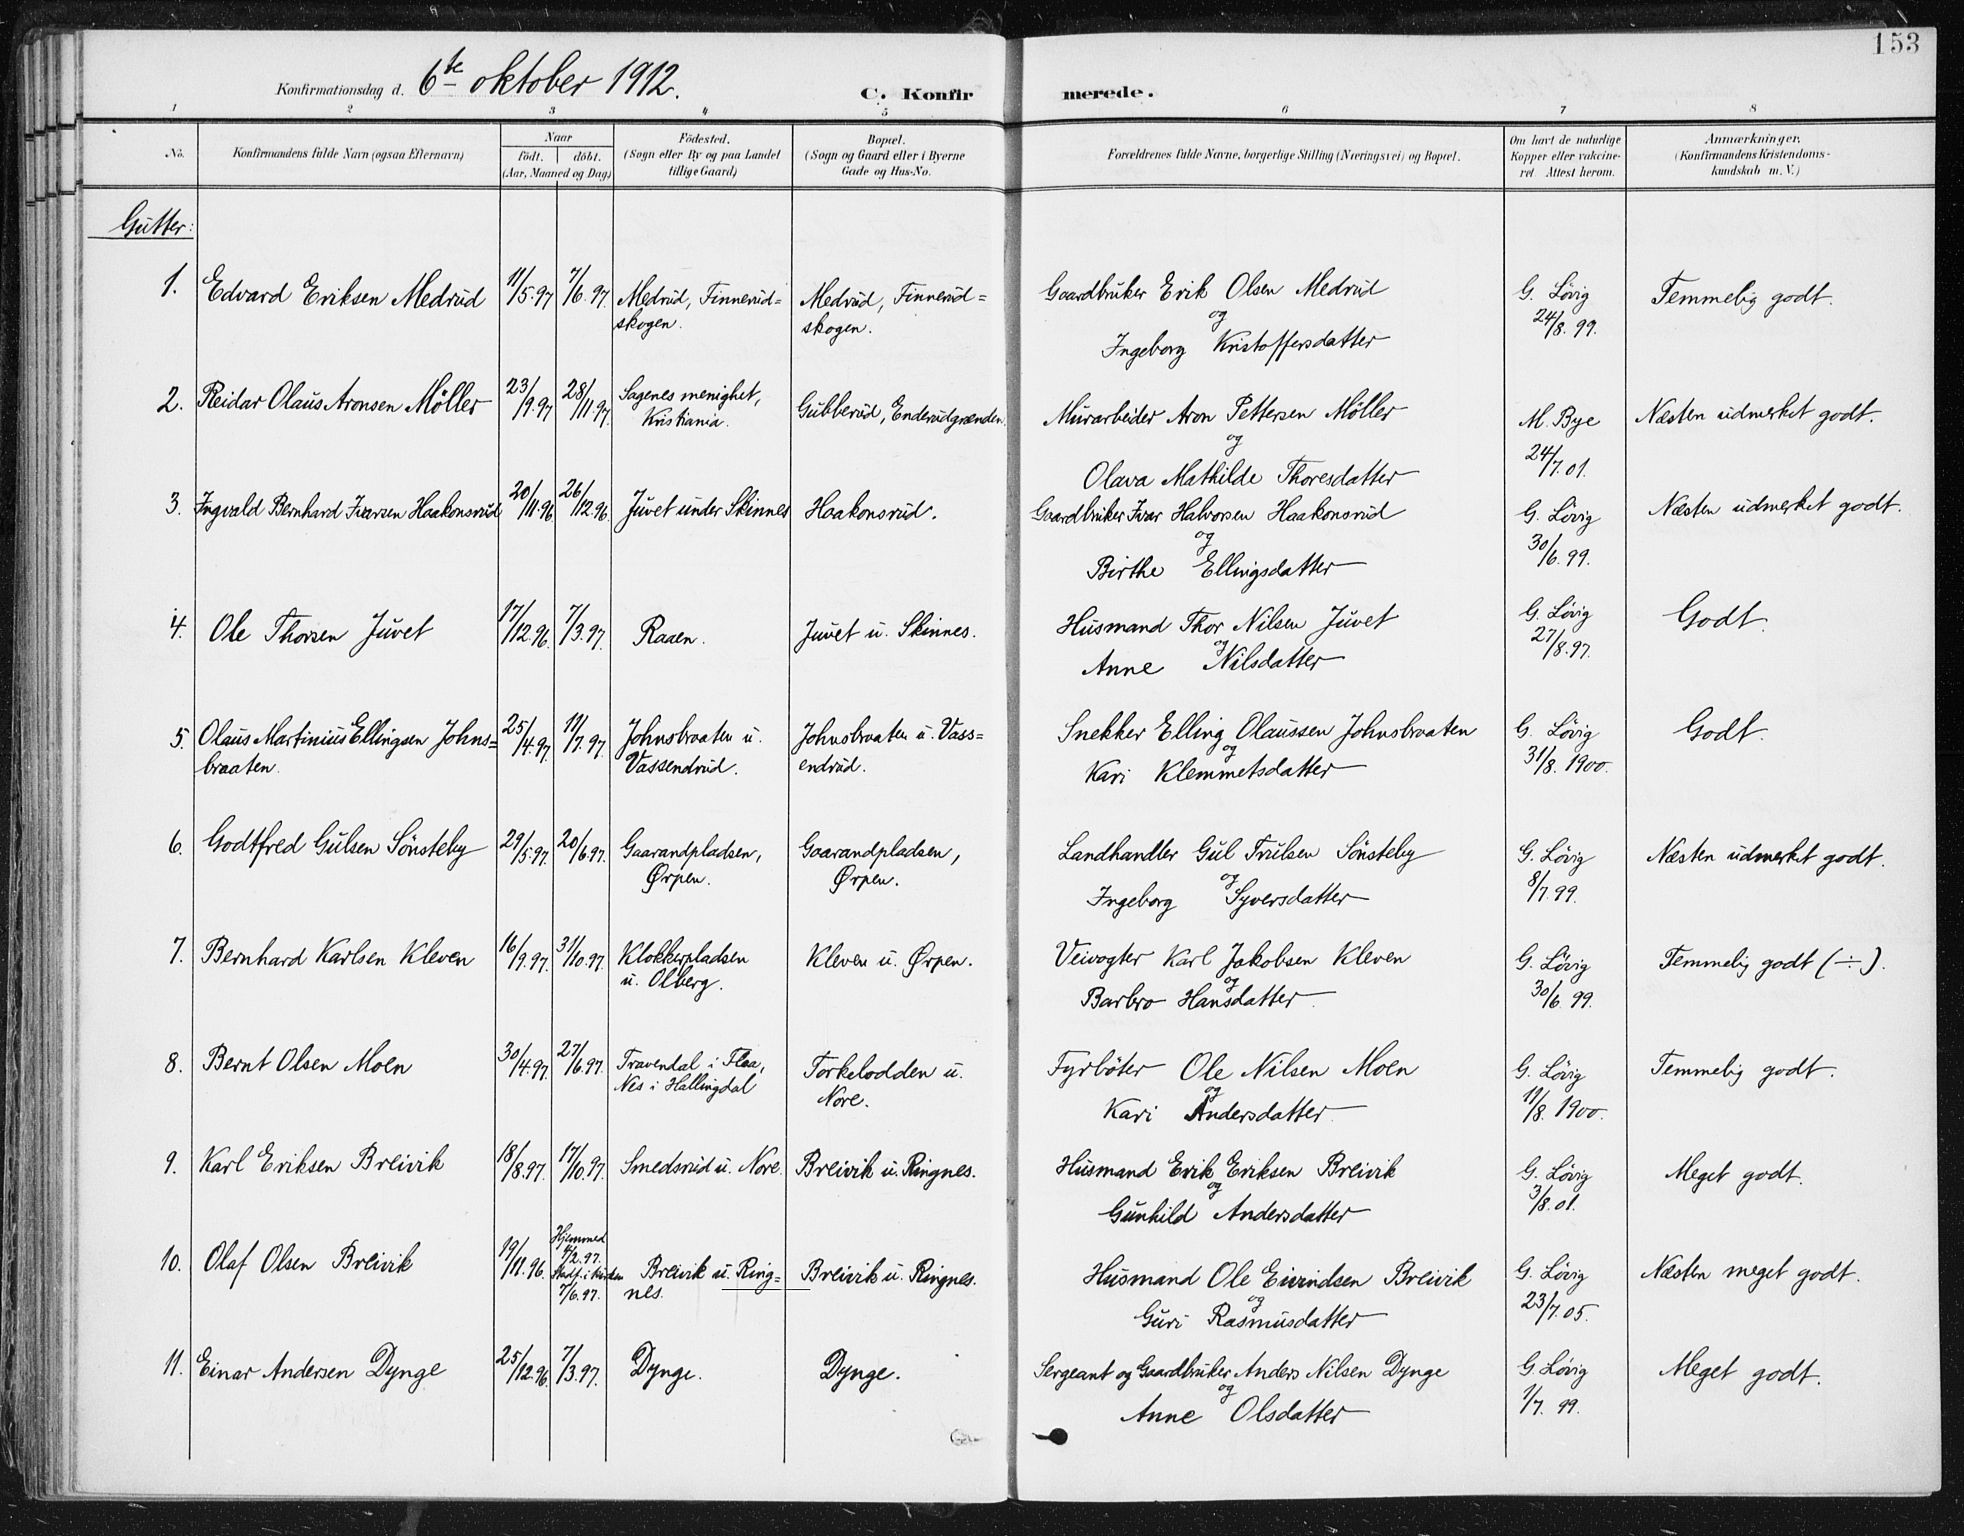 153
Konfirmationsdag d. 6te oktober 1912.
C. Konfirmerede.
1 2 3 4 5 6 7 8
No.
Konfirmandens fulde Navn (ogsaa Efternavn)
Naar
födt. döbt.
(Aar, Maaned og Dag)
Födested.
(Sogn eller By og paa Landet
tillige Gaard)
Bopæl.
(Sogn og Gaard eller i Byerne
Gade og Hus-No.
Forældrenes fulde Navne, borgerlige Stilling (Næringsvei) og Bopæl.
Om havt de naturlige
Kopper eller vakcine-
ret. Attest herom.
Anmærkninger.
(Konfirmandens Kristendoms-
kundskab m. V.)
Gutter:
1. Edvard Eriksen Medrud 11/5.97 7/6.97. Medrud, Finnerud= Medrud, Finnerud= Gaardbruker Erik Olsen Medrud G. Lövig Temmelig godt.
skogen. skogen. og 24/8.99.
Ingeborg Kristoffersdatter
2. Reidar Olaus Aronsen Möller 23/9.97 28/11.97. Sagenes menighet, Gubberud, Enderudgrænden. Murarbeider Aron Pettersen Möller M. Bye Næsten udmerket godt.
Kristiania. og 24/7.01.
Olava Mathilde Thoresdatter
3. Ingvald Bernhard Ivarsen Haakonsrud 20/11.96 26/12.96. Juvet under Skinnes Haakonsrud. Gaardbruker Ivar Halvorsen Haakonsrud G. Lövig Næsten udmerket godt.
og 30/6.99.
Birthe Ellingsdatter
4. Ole Thorsen Juvet 17/12.96. 7/3.97. Raaen. Juvet u. Skinnes. Husmand Thor Nilsen Juvet G. Lövig Godt.
og 27/8.97.
Anne Nilsdatter
5. Olaus Martinius Ellingsen Johns= 25/4.97. 11/7.97 Johnsbraaten u. Johnsbraaten u. Vass= Snekker Elling Olaussen Johnsbraaten G. Lövig Godt.
braaten. Vassendrud. endrud. og 31/8.1900.
Kari Klemmetsdatter
6. Godtfred Gulsen Sönsteby 29/5.97. 20/6.97. Gaarandpladsen, Gaarandpladsen, Landhandler Gul Trulsen Sönsteby G. Lövig Næsten udmerket godt.
Ørpen. Ørpen. og 8/7.99.
Ingeborg Syversdatter
7. Bernhard Karlsen Kleven 16/9.97. 31/10.97. Klokkerpladsen Kleven u. Ørpen. Veivogter Karl Jakobsen Kleven G. Lövig Temmelig godt (÷).
u. Olberg. og 30/6.99.
Barbro Hansdatter
8. Bernt Olsen Moen 30/4.97. 27/6.97. Travendal i Flaa, Torkelodden u. Fyrböter Ole Nilsen Moen G. Lövig Temmelig godt.
Nes i Hallingdal Nore. og 11/8.1900.
Kari Andersdatter
9. Karl Eriksen Breivik 18/8.97. 17/10.97. Smedsrud u. Nore. Breivik u. Ringnes. Husmand Erik Eriksen Breivik G. Lövig Meget godt.
og 3/8.01.
Gunhild Andersdatter
10. Olaf Olsen Breivik 19/11.96. Hjemmed. 4/2.97. Stadf. i kirken 7/6.97. Breivik u. Ring= Breivik u. Ringnes. Husmand Ole Eivindsen Breivik G. Lövig Næsten meget godt.
nes. og 23/7.05.
Guri Rasmusdatter
11. Einar Andersen Dynge 25/12.96. 7/3.97. Dynge. Dynge. Sergeant og Gaardbruker Anders Nilsen Dynge G. Lövig Meget godt.
og 1/7.99.
Anne Olsdatter